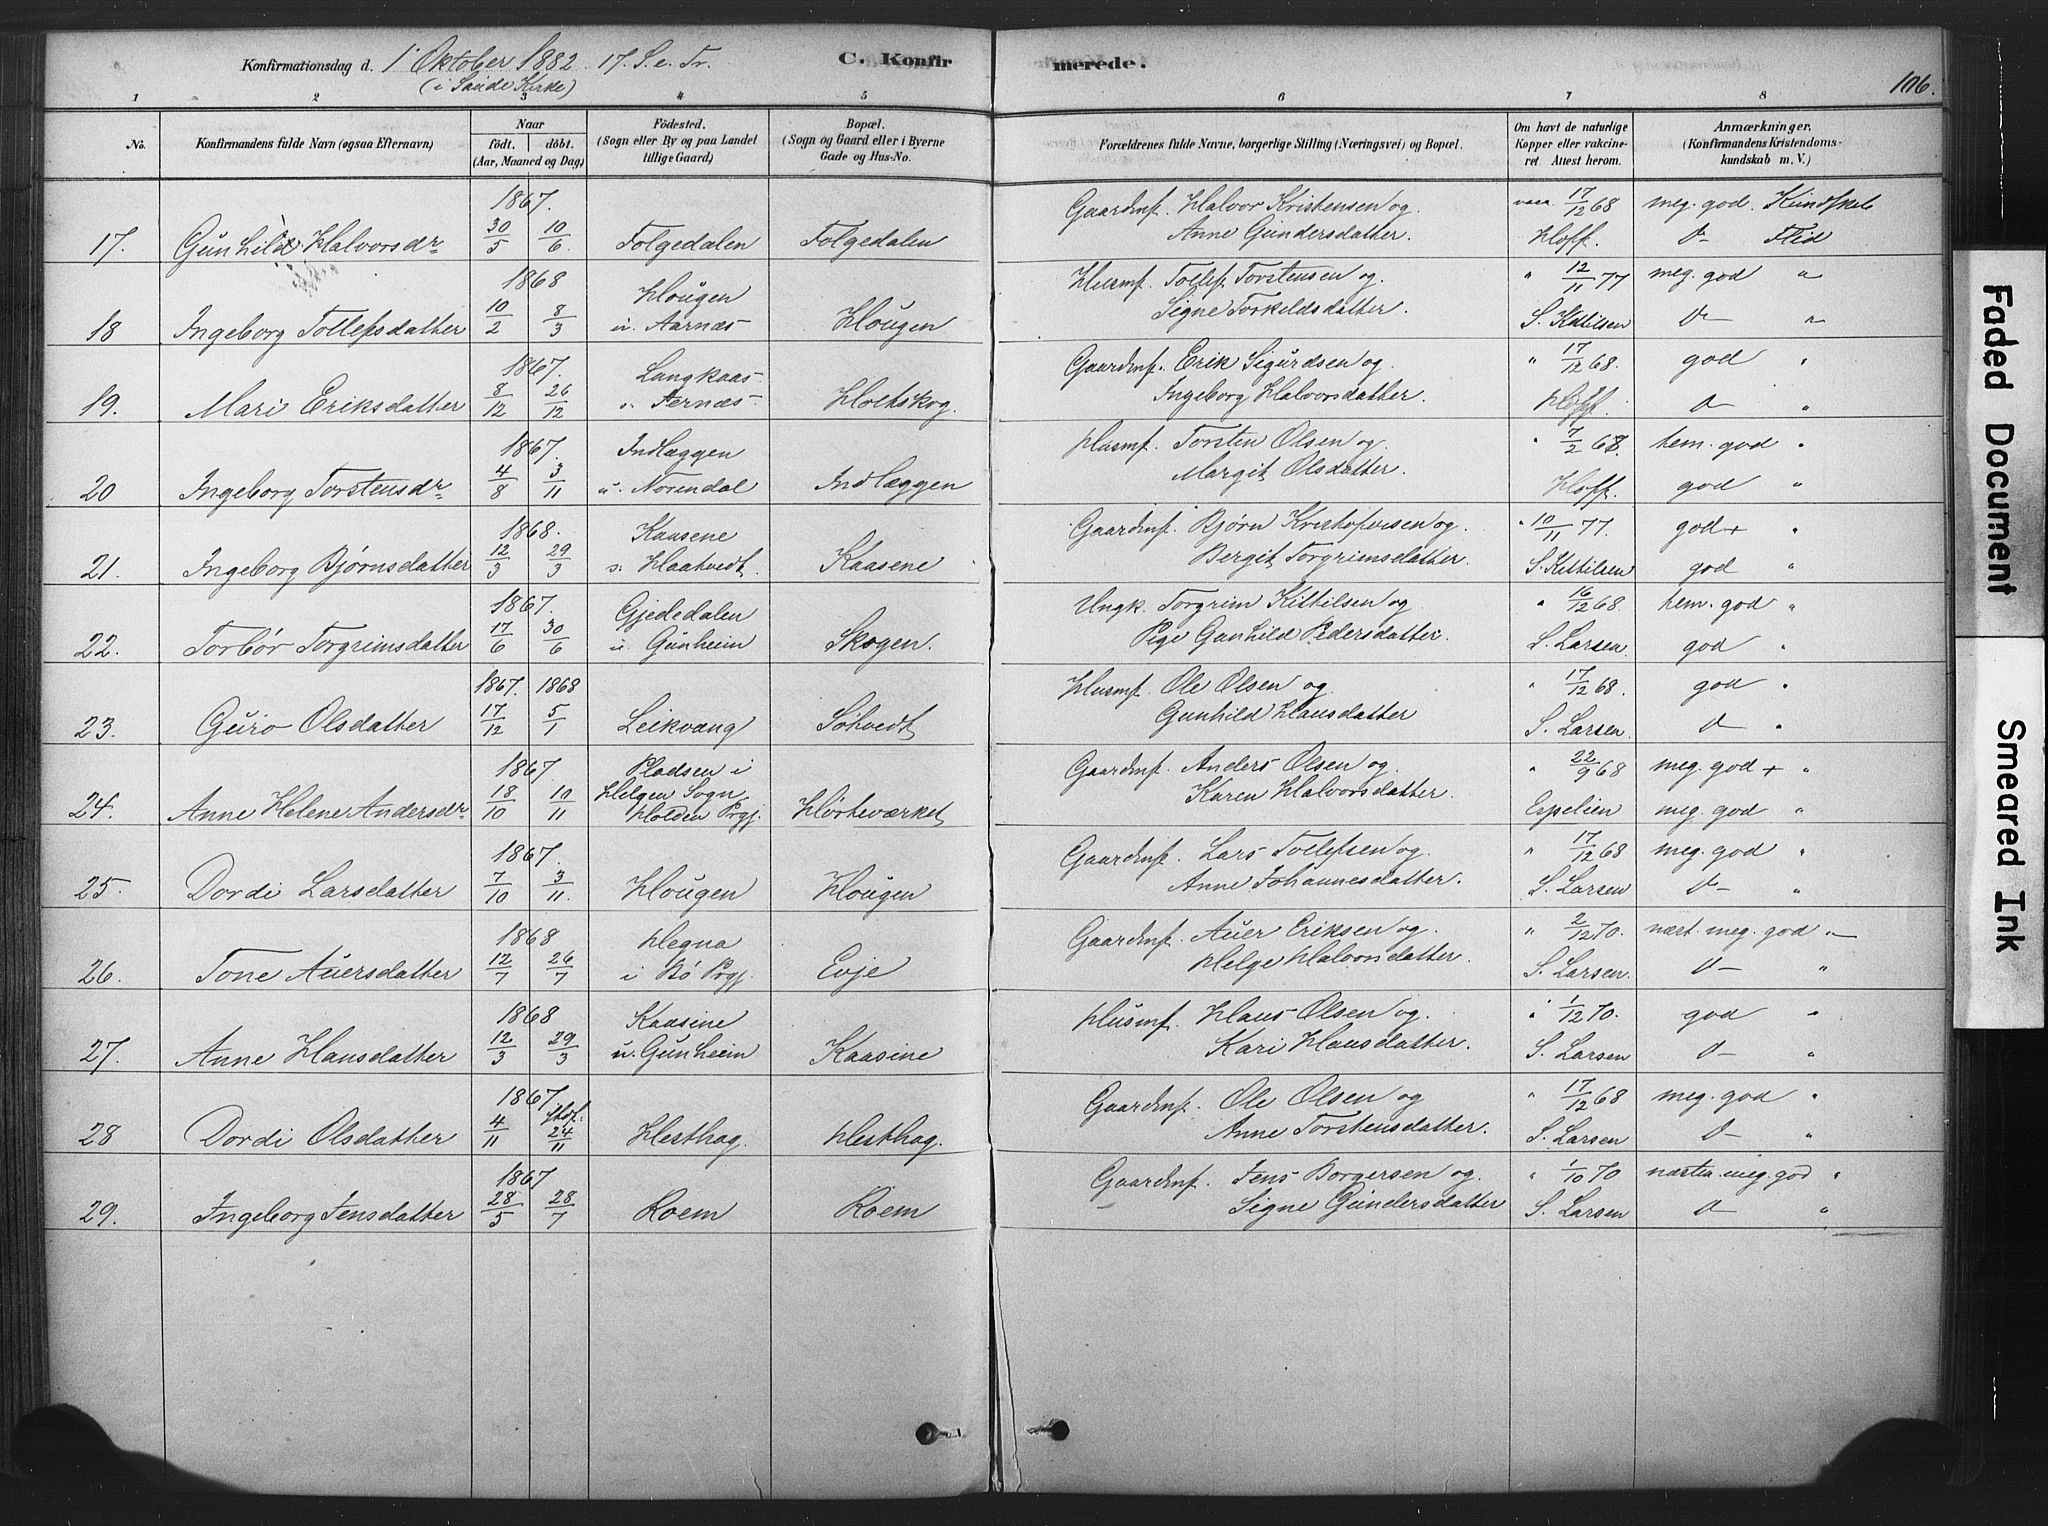 Konfirmationsdag d. 1 Oktober 1882. 17. S. e. Tr. C. Konfirmerede. 106.
(i Saude Kirke)
1 2 3 4 5 6 7 8
No. Konfirmandens fulde Navn (ogsaa Efternavn) Naar født. døbt. (Aar, Maaned og Dag) Fødested. (Sogn eller By og paa Landet tillige Gaard) Bopæl. (Sogn og Gaard eller i Byerne Gade og Hus-No. Forældrenes fulde Navne, borgerlige Stilling (Næringsvei) og Bopæl. Om havt de naturlige Kopper eller vakcineret. Attest herom. Anmærkninger. (Konfirmandens Kristendomskundskab m. V.)
1867. Gaardmf. Halvor Kristensen og vacc. 17/12 68 meg. god. Kundskab
17. Gunhild Halvorsdr 30/5 10/6 Folgedalen Folgedalen Anne Gundersdatter. Hoff. d- Flid
1868 Hougen Husmf. Tollef Torstensen og " 12/11 77 meg. god "
18 Ingeborg Tollefsdatter 10/2 8/3 u. Aarnæs Hougen Signe Torkildsdatter. S. Kittilsen d- "
1867. Langkaas Gaardmf. Erik Sigurdsen og " 17/12 68. god "
19. Mari Eriksdatter 8/12 26/12 Holtskog. Ingeborg Halvorsdatter. Hoff. d- "
1867. Indlæggen Husmf. Torsten Olsen og " 7/2 68 tem. god "
20 Ingeborg Torstensdr 4/8 3/11 u. Norendal Indlæggen Margit Olsdatter. Hoff. god "
1868. Kaasene Gaardmf. Bjørn Kristofersen og " 10/11 77. god + "
21. Ingeborg Bjørnsdatter 12/3 29/3 Haatvedt. Kaasene Bergit Torgrimsdatter. S. Kittilsen god "
1867. Gjededalen Ungk. Torgrim Kittilsen og " 16/12 68. tem. god "
22. Torbør Torgrimsdatter 17/6 30/6 u. Gunheim Skogen. Pige Gunhild Pedersdatter. S. Larsen. god "
1867. 1868 Husmf. Ole Olsen og " 17/12 68. god "
23. Guro Olsdatter 17/12 5/1 Leikvang Søtvedt Gunhild Hansdatter S. Larsen. d "
1867 Pladsen i Gaardmf. Anders Olsen og " 22/9 68 meg. god + "
24. Anne Helene Andersdr 18/10 10/11 Helgen Sogn, Holden Prgj. Hørteværket Karen Halvorsdatter. Espelien meg. god "
1867. Gaardmf. Lars Tollefsen og " 17/12 68 meg. god "
25. Dordi Larsdatter 7/10 3/11. Hougen Hougen Anne Johannesdatter. S. Larsen d- "
1868 Hegna Gaardmf. Auer Eriksen og " 2/12 70. næst. meg. god "
26. Tone Auersdatter 12/7 26/7 i Bø Prgj. Evje Helge Halvorsdatter. S. Larsen. d- "
1868 Kaasine Husmf. Hans Olsen og " 1/12 70. god "
27. Anne Hansdatter 12/3 29/3 u. Gunheim Kaasine Kari Hansdatter. S. Larsen d- "
1867 Gaardmf. Ole Olsen og " 17/12 68 meg. god "
28 Dordi Olsdatter 4/11 24/11 Hesthag. Hesthag. Anne Torstensdatter. S. Larsen d- "
1867 Gaardmf. Jens Borgersen og " 1/10 70 næsten meg. god "
29. Ingeborg Jensdatter 28/5 28/7 Roem Roem Signe Gundersdatter S. Larsen d- "
Faded Document
Smeared Ink